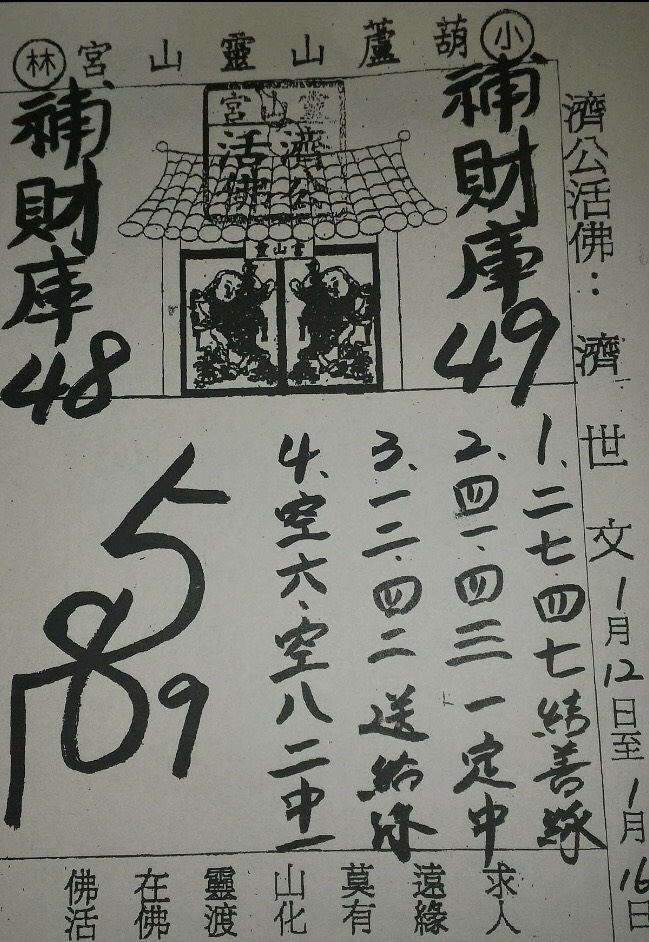 小葫蘆山靈山宮林
濟公活佛：濟世文1月12日至1月16日
補財庫49
靈山宮
濟公
活佛
靈山宮
補財庫48
1、二七．四七結善緣
2、四一．四三一定中
3、一二．四二送給緣
4、空六．空八二中一
5
789
佛在靈山莫遠求
活佛渡化有緣人